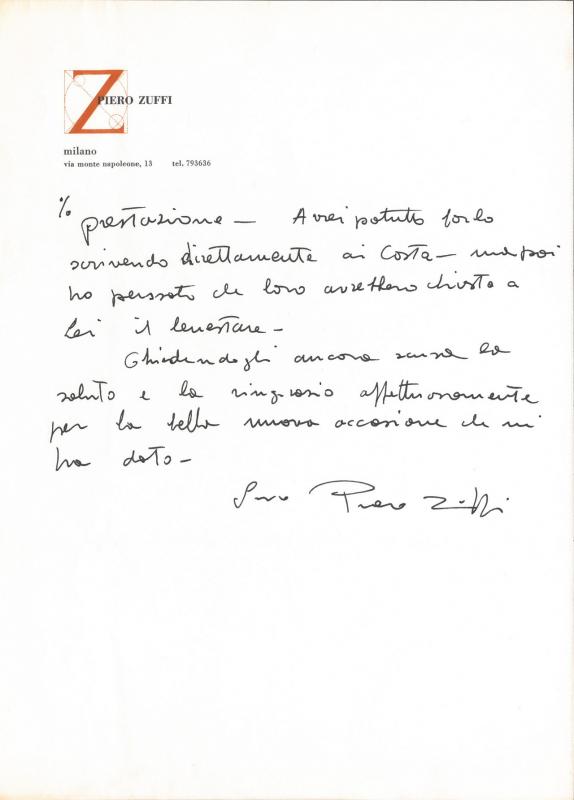 Z
PIERO ZUFFI
milano
via monte napoleone, 13 tel. 793636
%
prestazione — Avrei potuto farlo
scrivendo direttamente ai Costa — ma poi
ho pensato che loro avrebbero chiesto a
Lei il benestare —
Chiedendogli ancora scusa la
saluto e la ringrazio affettuosamente
per la bella nuova occasione che mi
ha dato —
Suo Piero Zuffi